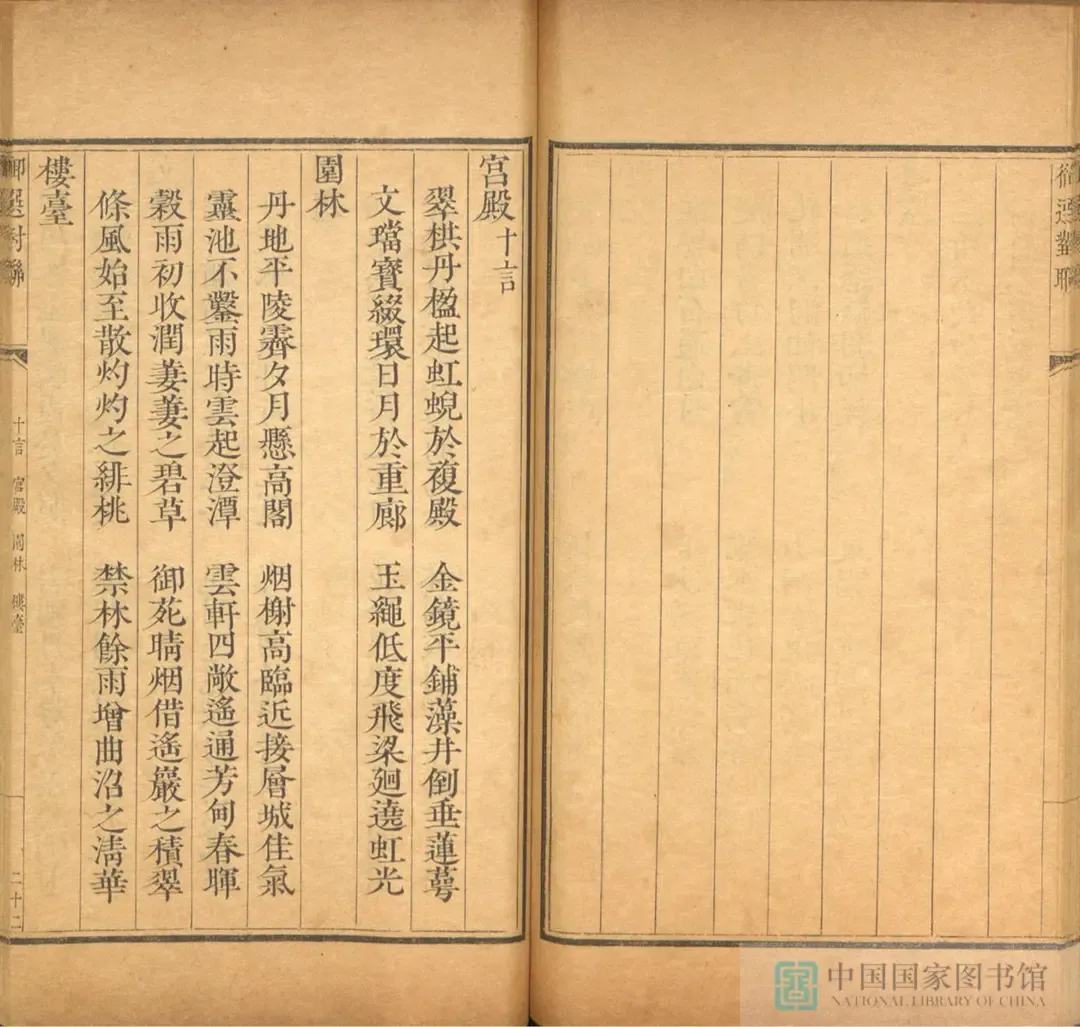 御選對聯
宮殿 十言
翠栱丹楹起虹蜺於複殿 金鏡平鋪藻井倒垂蓮萼
文璫寶綴環日月於重廊 玉繩低度飛梁廻遶虹光
園林
丹地平陵霽夕月懸高閣 烟榭高臨近接層城佳氣
靈池不鑿雨時雲起澄潭 雲軒四敞遙通芳甸春暉
穀雨初收潤萋萋之碧草 御苑晴烟借遙巖之積翠
條風始至散灼灼之緋桃 禁林餘雨增曲沼之淸華
樓臺
御選對聯 十言 宮殿 園林 樓臺 二十二
中国国家图书馆
NATIONAL LIBRARY OF CHINA